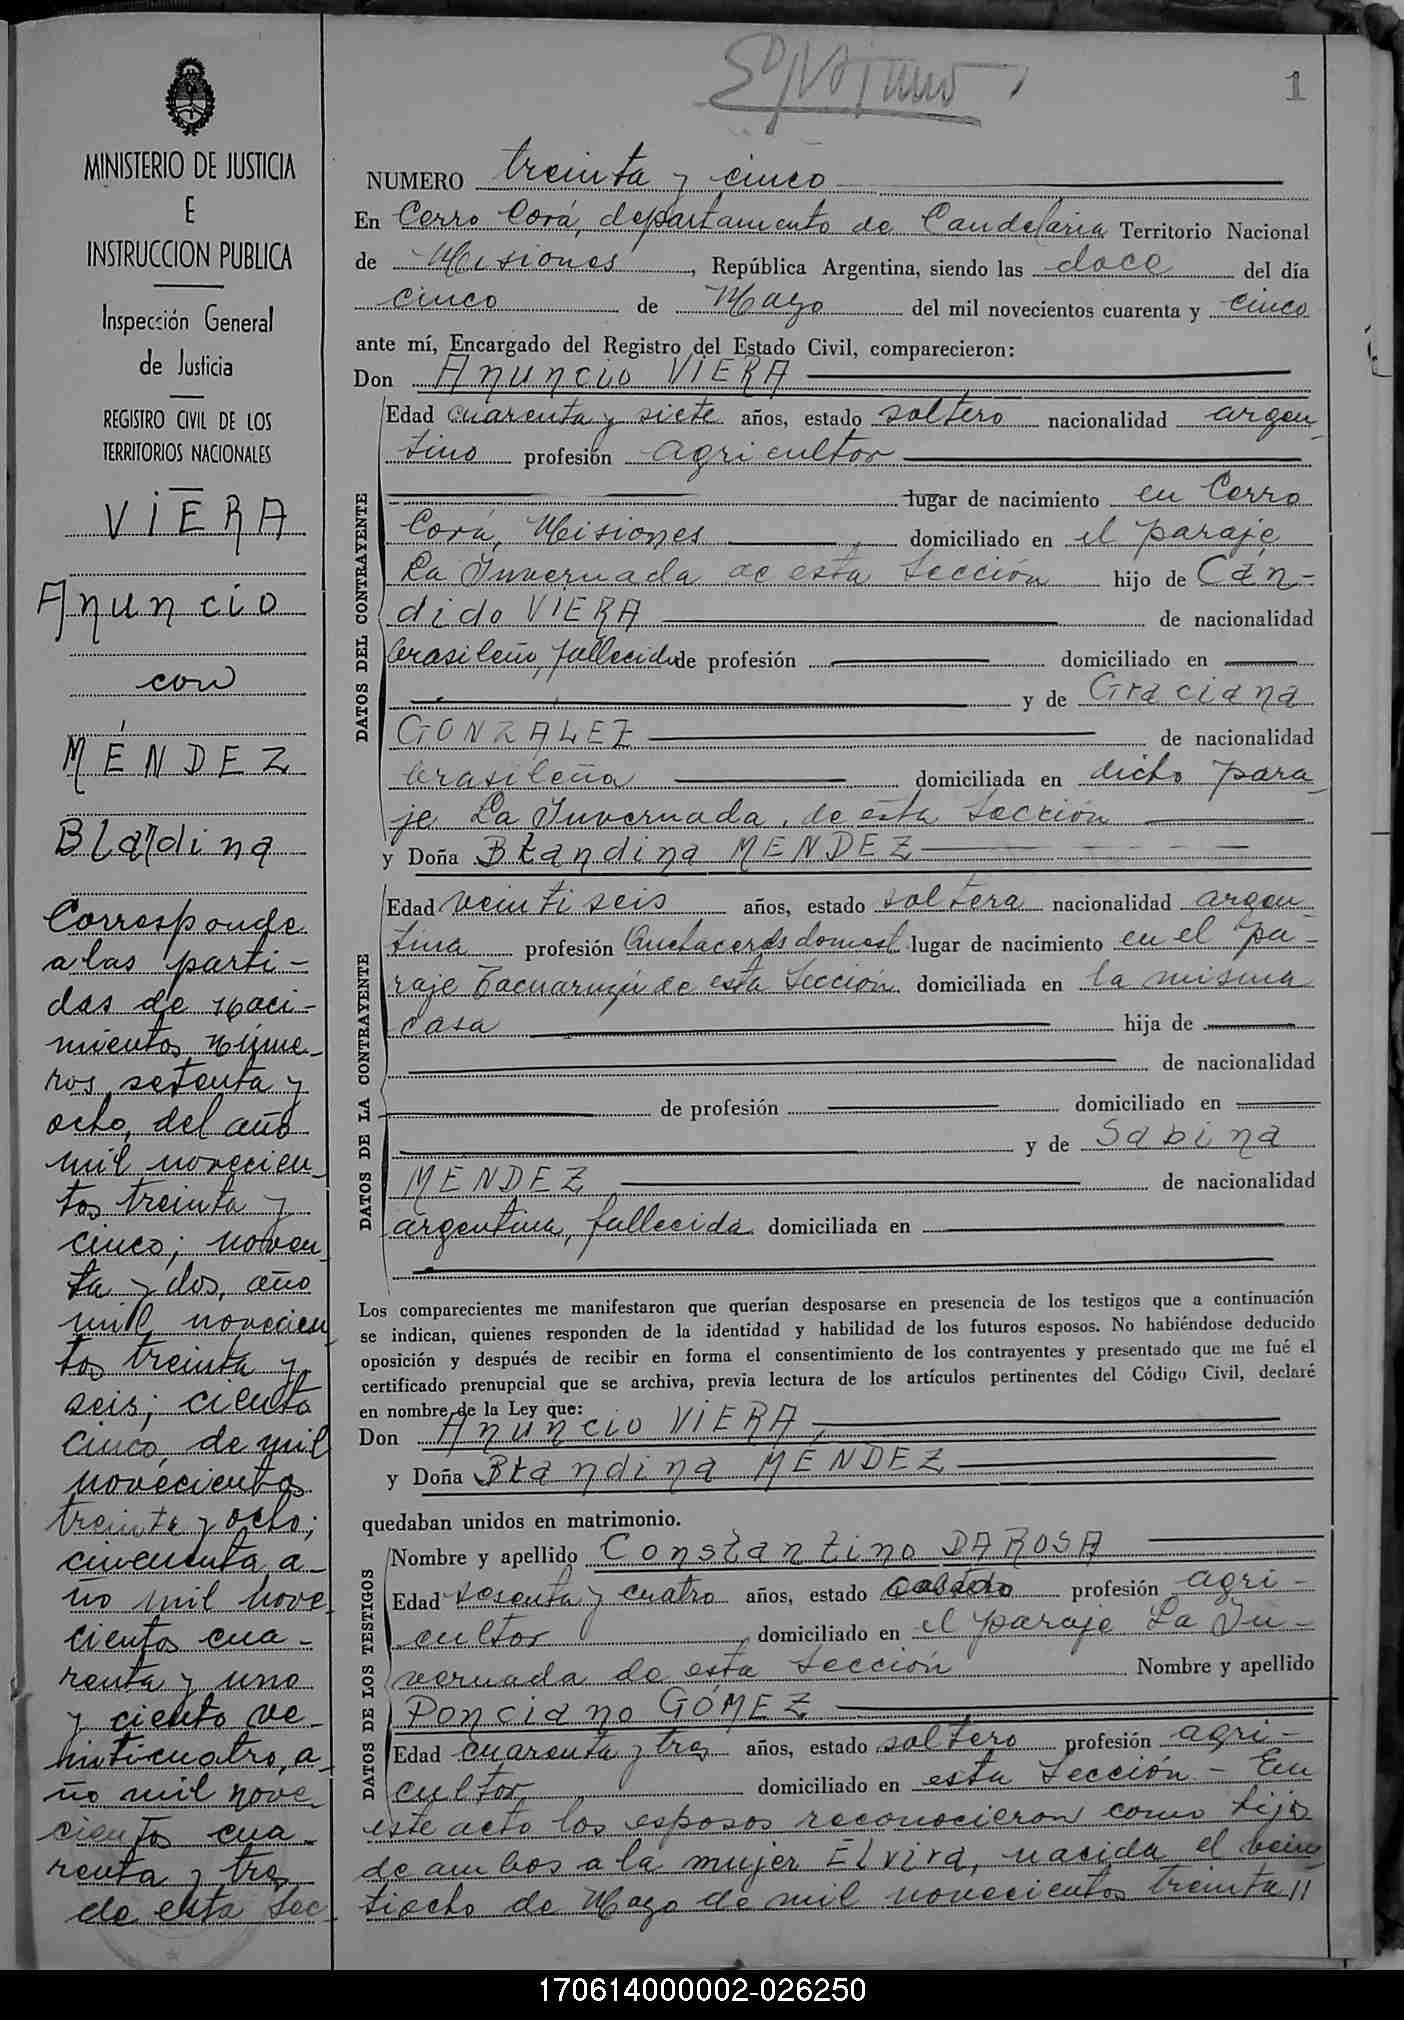 1
MINISTERIO DE JUSTICIA
E
INSTRUCCION PUBLICA
Inspección General
de Justicia
REGISTRO CIVIL DE LOS
TERRITORIOS NACIONALES
VIERA
Anuncio
con
MÉNDEZ
Blandina
Corresponde
a las parti-
das de naci-
mientos núme-
ros setenta y
ocho, del año
mil novecien
tos treinta y
cinco; noven
ta y dos, año
mil novecien
tos treinta y
seis; ciento
cinco, de mil
novecientos
treinta y ocho;
cincuenta, a-
ño mil nove
cientos cua-
renta y uno
y ciento ve-
inticuatro, a-
ño mil nove
cientos cua-
renta y tres
de esta Sec
NUMERO treinta y cinco
En Cerro Corá, departamento de Candelaria Territorio Nacional
de Misiones, República Argentina, siendo las doce del día
cinco de Mayo del mil novecientos cuarenta y cinco
ante mí, Encargado del Registro del Estado Civil, comparecieron:
Don Anuncio VIERA
DATOS DEL CONTRAYENTE
Edad cuarenta y siete años, estado soltero nacionalidad argen
tino profesión agricultor
lugar de nacimiento en Cerro
Corá, Misiones domiciliado en el paraje
La Invernada de esta Sección hijo de Cán-
dido VIERA de nacionalidad
brasileño, fallecido de profesión domiciliado en
y de Graciana
GONZÁLEZ de nacionalidad
brasileña domiciliada en dicho para
je La Invernada, de esta Sección
y Doña Blandina MENDEZ
DATOS DE LA CONTRAYENTE
Edad veintiseis años, estado soltera nacionalidad argen
tina profesión Quehaceres domést. lugar de nacimiento en el pa-
raje Tacuaruzú de esta Sección domiciliada en la misma
casa hija de
de nacionalidad
de profesión domiciliado en
y de Sabina
MENDEZ de nacionalidad
argentina, fallecida domiciliada en
Los comparecientes me manifestaron que querían desposarse en presencia de los testigos que a continuación
se indican, quienes responden de la identidad y habilidad de los futuros esposos. No habiéndose deducido
oposición y después de recibir en forma el consentimiento de los contrayentes y presentado que me fué el
certificado prenupcial que se archiva, previa lectura de los artículos pertinentes del Código Civil, declaré
en nombre de la Ley que:
Don Anuncio VIERA,
y Doña Blandina MENDEZ
quedaban unidos en matrimonio.
DATOS DE LOS TESTIGOS
Nombre y apellido Constantino DA ROSA
Edad sesenta y cuatro años, estado casado profesión agri-
cultor domiciliado en el paraje La In-
vernada de esta Sección Nombre y apellido
Ponciano GÓMEZ
Edad cuarenta y tres años, estado soltero profesión agri-
cultor domiciliado en esta Sección - En
este acto los esposos reconocieron como hijos
de ambos a la mujer Elvira, nacida el vein
tiocho de Mayo de mil novecientos treinta //
170614000002-026250